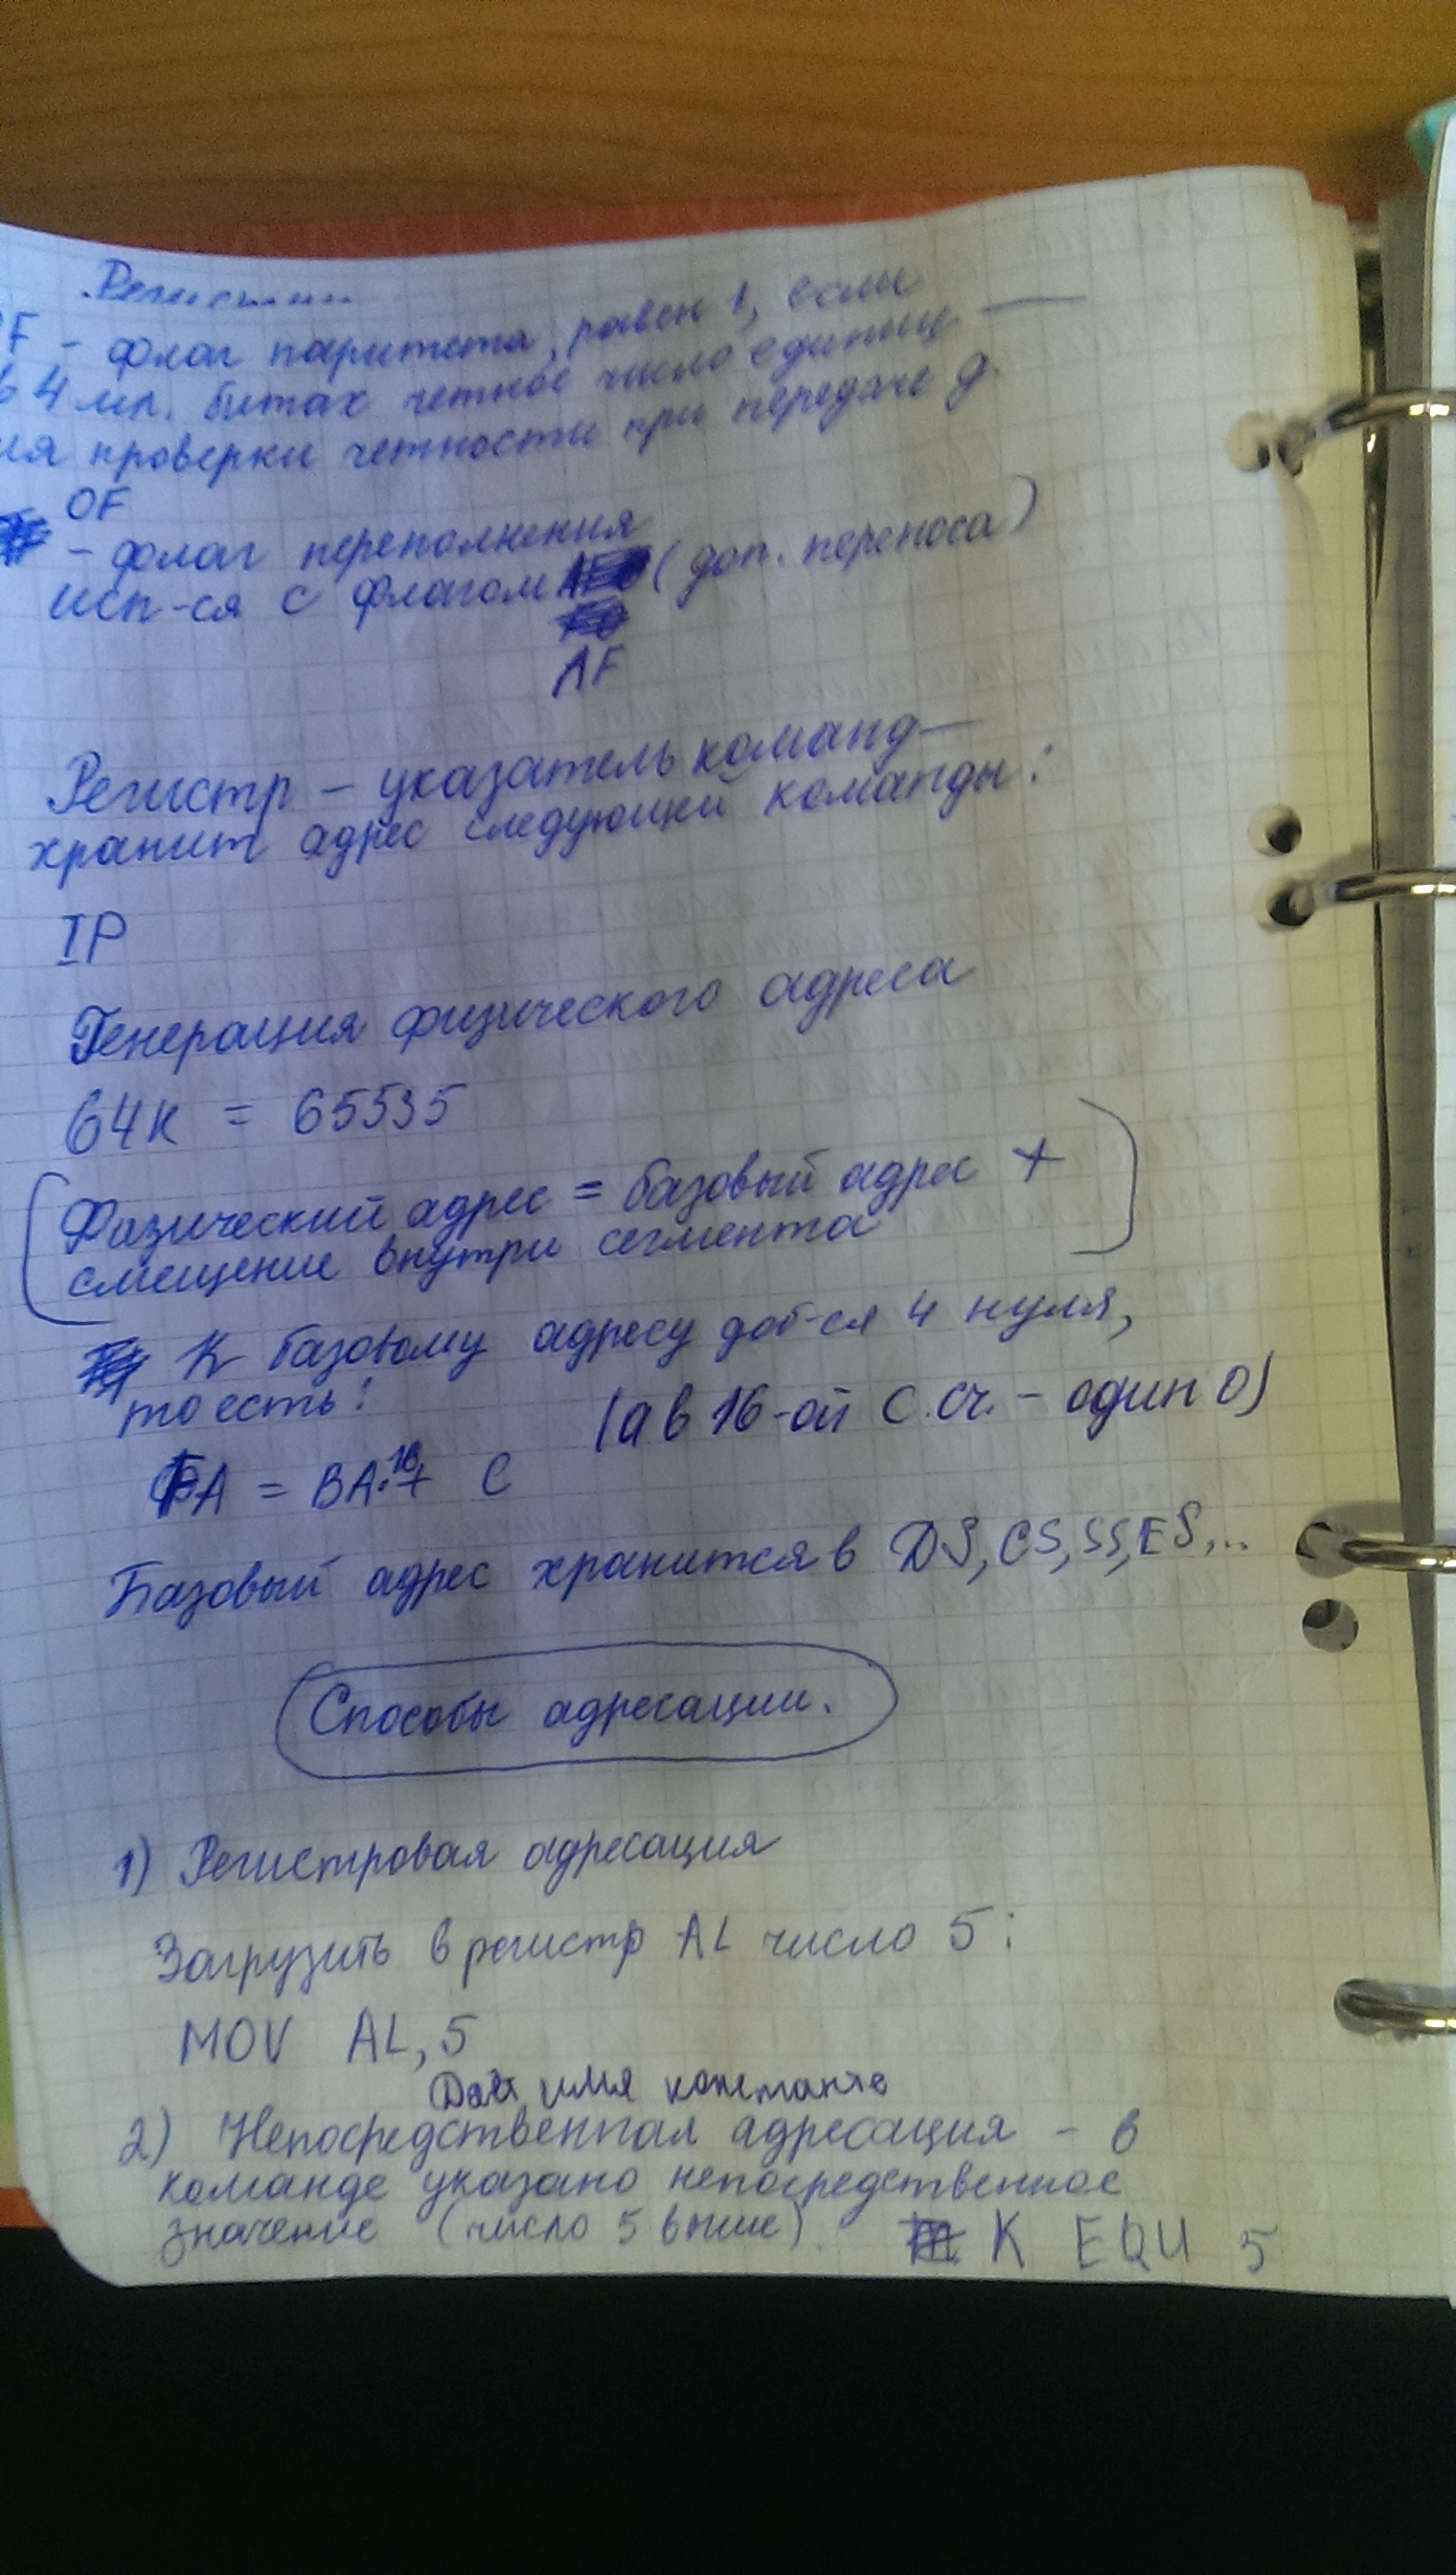 F - флаг паритета, равен 1, если
в 4 мл. битах четное число единиц —
ля проверки четности при передаче д.
OF
- флаг переполнения
исп-ся с флагом (доп. переноса)
AF
Регистр - указатель команд —
хранит адрес следующей команды:
IP
Генерация физического адреса
64К = 65535
Физический адрес = базовый адрес +
смещение внутри сегмента
К базовому адресу доб-ся 4 нуля,
то есть:
(а в 16-ой С.Сч. - один 0)
ФА = BA·16 + C
Базовый адрес хранится в DS, CS, SS, ES, ...
Способы адресации.
1) Регистровая адресация
Загрузить в регистр AL число 5:
MOV AL, 5
имя константе
2) Непосредственная адресация - в
команде указано непосредственное
значение (число 5 выше)
K EQU 5